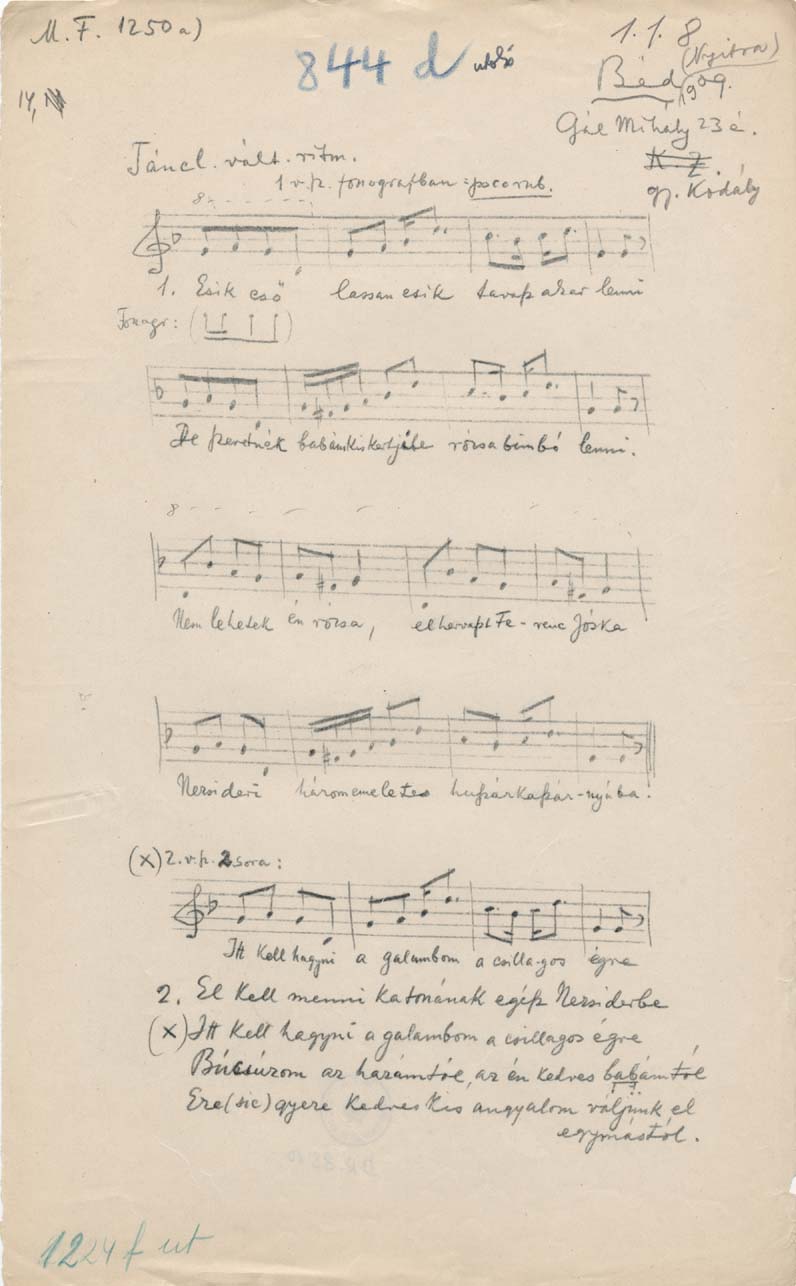 M. F. 1250 a)
844 d utolsó
1. 1. 8
Béd (Nyitra)
1909.
14,
Gál Mihály 23 é.
K. Z.
gy. Kodály
Táncl. vált. ritm.
1 v.sz. fonografban = poco rub.
8
1. Esik eső lassan esik tavasz akar lenni
Fonogr: ( )
De szeretnék babám kis kertjébe rózsabimbó lenni.
8
Nem lehetek én rózsa, elhervaszt Fe-renc Jóska
Nezsideri háromemeletes huszárkaszár-nyába.
(x) 2. v.sz. 2 sora:
Itt kell hagyni a galambom a csilla-gos égre
2. El kell menni katonának egész Nezsiderbe
(x) Itt kell hagyni a galambom a csillagos égre
Búcsúzom az hazámtól, az én kedves babámtól
Ere (sic) gyere kedves kis angyalom váljunk el
egymástól.
1224 f ut